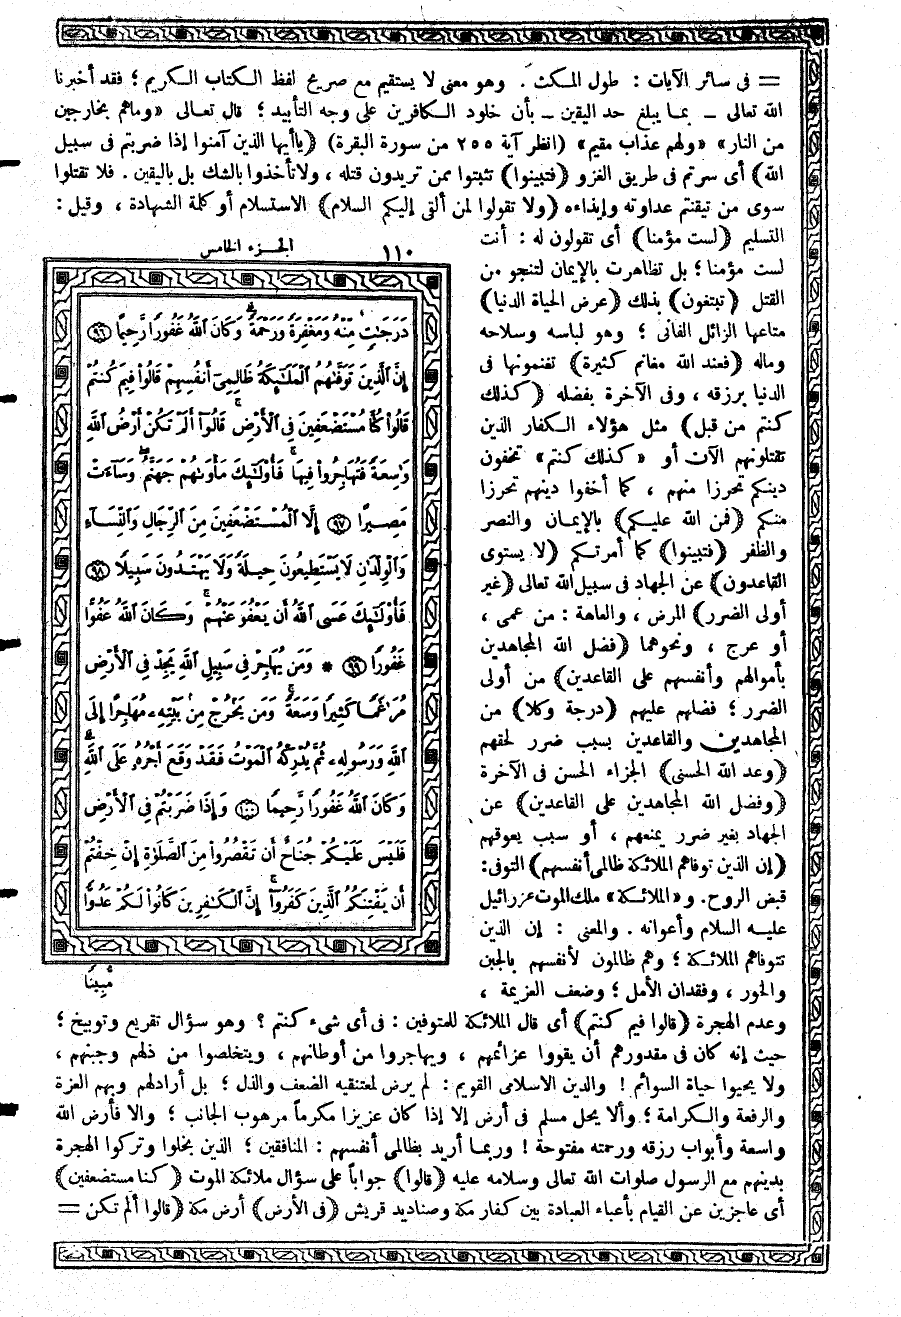 = فى سائر الآيات : طول المكث . وهو معنى لا يستقيم مع صريح لفظ الكتاب الكريم ؛ فقد أخبرنا
الله تعالى ــ بما يبلغ حد اليقين ــ بأن خلود الكافرين على وجه التأبيد ؛ قال تعالى «وماهم بخارجين
من النار» «ولهم عذاب مقيم» (انظر آية ٢٥٥ من سورة البقرة) (ياأيها الذين آمنوا إذا ضربتم فى سبيل
الله) أى سرتم فى طريق الغزو (فتبينوا) تثبتوا ممن تريدون قتله ، ولاتأخذوا بالشك بل باليقين . فلا تقتلوا
سوى من تيقنتم عداوته وإيذاءه (ولا تقولوا لمن ألقى إليكم السلام) الاستسلام أو كلمة الشهادة ، وقيل :
التسليم (لست مؤمنا) أى تقولون له : أنت
لست مؤمنا ؛ بل تظاهرت بالإيمان لتنجو من
القتل (تبتغون) بذلك (عرض الحياة الدنيا)
متاعها الزائل الفانى ؛ وهو لباسه وسلاحه
وماله (فعند الله مغانم كثيرة) تغنمونها فى
الدنيا برزقه ، وفى الآخرة بفضله (كذلك
كنتم من قبل) مثل هؤلاء الكفار الذين
تقتلونهم الآن أو «كذلك كنتم» تخفون
دينكم تحرزا منهم ، كما أخفوا دينهم تحرزا
منكم (فمن الله عليكم) بالإيمان والنصر
والظفر (فتبينوا) كما أمرتكم (لا يستوى
القاعدون) عن الجهاد فى سبيل الله تعالى (غير
أولى الضرر) المرض ، والعاهة : من عمى ،
أو عرج ، ونحوهما (فضل الله المجاهدين
بأموالهم وأنفسهم على القاعدين) من أولى
الضرر ؛ فضلهم عليهم (درجة وكلا) من
المجاهدين والقاعدين بسبب ضرر لحقهم
(وعد الله الحسنى) الجزاء الحسن فى الآخرة
(وفضل الله المجاهدين على القاعدين) عن
الجهاد بغير ضرر يمنعهم ، أو سبب يعوقهم
(إن الذين توفاهم الملائكة ظالمى أنفسهم) التوفى:
قبض الروح. و «الملائكة» ملك الموت عزرائيل
عليه السلام وأعوانه . والمعنى : إن الذين
تتوفاهم الملائكة ؛ وهم ظالمون لأنفسهم بالجبن
والخور ، وفقدان الأمل ؛ وضعف العزيمة ،
١١٠ الجزء الخامس
دَرَجَٰتٍ مِّنْهُ وَمَغْفِرَةً وَرَحْمَةً وَكَانَ ٱللَّهُ غَفُورًا رَّحِيمًا ٩٦
إِنَّ ٱلَّذِينَ تَوَفَّىٰهُمُ ٱلْمَلَٰٓئِكَةُ ظَالِمِىٓ أَنفُسِهِمْ قَالُوا۟ فِيمَ كُنتُمْ
قَالُوا۟ كُنَّا مُسْتَضْعَفِينَ فِى ٱلْأَرْضِ قَالُوٓا۟ أَلَمْ تَكُنْ أَرْضُ ٱللَّهِ
وَٰسِعَةً فَتُهَاجِرُوا۟ فِيهَا فَأُو۟لَٰٓئِكَ مَأْوَىٰهُمْ جَهَنَّمُ وَسَآءَتْ
مَصِيرًا ٩٧ إِلَّا ٱلْمُسْتَضْعَفِينَ مِنَ ٱلرِّجَالِ وَٱلنِّسَآءِ
وَٱلْوِلْدَٰنِ لَا يَسْتَطِيعُونَ حِيلَةً وَلَا يَهْتَدُونَ سَبِيلًا ٩٨
فَأُو۟لَٰٓئِكَ عَسَى ٱللَّهُ أَن يَعْفُوَ عَنْهُمْ وَكَانَ ٱللَّهُ عَفُوًّا
غَفُورًا ٩٩ * وَمَن يُهَاجِرْ فِى سَبِيلِ ٱللَّهِ يَجِدْ فِى ٱلْأَرْضِ
مُرَٰغَمًا كَثِيرًا وَسَعَةً وَمَن يَخْرُجْ مِنۢ بَيْتِهِۦ مُهَاجِرًا إِلَى
ٱللَّهِ وَرَسُولِهِۦ ثُمَّ يُدْرِكْهُ ٱلْمَوْتُ فَقَدْ وَقَعَ أَجْرُهُۥ عَلَى ٱللَّهِ
وَكَانَ ٱللَّهُ غَفُورًا رَّحِيمًا ١٠٠ وَإِذَا ضَرَبْتُمْ فِى ٱلْأَرْضِ
فَلَيْسَ عَلَيْكُمْ جُنَاحٌ أَن تَقْصُرُوا۟ مِنَ ٱلصَّلَوٰةِ إِنْ خِفْتُمْ
أَن يَفْتِنَكُمُ ٱلَّذِينَ كَفَرُوٓا۟ إِنَّ ٱلْكَٰفِرِينَ كَانُوا۟ لَكُمْ عَدُوًّا
مُّبِينًا
وعدم الهجرة (قالوا فيم كنتم) أى قال الملائكة للمتوفين : فى أى شىء كنتم ؟ وهو سؤال تقريع وتوبيخ ؛
حيث إنه كان فى مقدورهم أن يقووا عزائمهم ، ويهاجروا من أوطانهم ، ويتخلصوا من ذلهم وجبنهم ،
ولا يحيوا حياة السوائم ! والدين الاسلامى القويم : لم يرض لمعتنقيه الضعف والذل ؛ بل أرادلهم وبهم العزة
والرفعة والكرامة ؛ وألا يحل مسلم فى أرض إلا إذا كان عزيزا مكرماً مرهوب الجانب ؛ والا فأرض الله
واسعة وأبواب رزقه ورحمته مفتوحة ! وربما أريد بظالمى أنفسهم : المنافقين ؛ الذين بخلوا وتركوا الهجرة
بدينهم مع الرسول صلوات الله تعالى وسلامه عليه (قالوا) جواباً على سؤال ملائكة الموت (كنا مستضعفين)
أى عاجزين عن القيام بأعباء العبادة بين كفار مكة وصناديد قريش (فى الأرض) أرض مكة (قالوا ألم تكن =